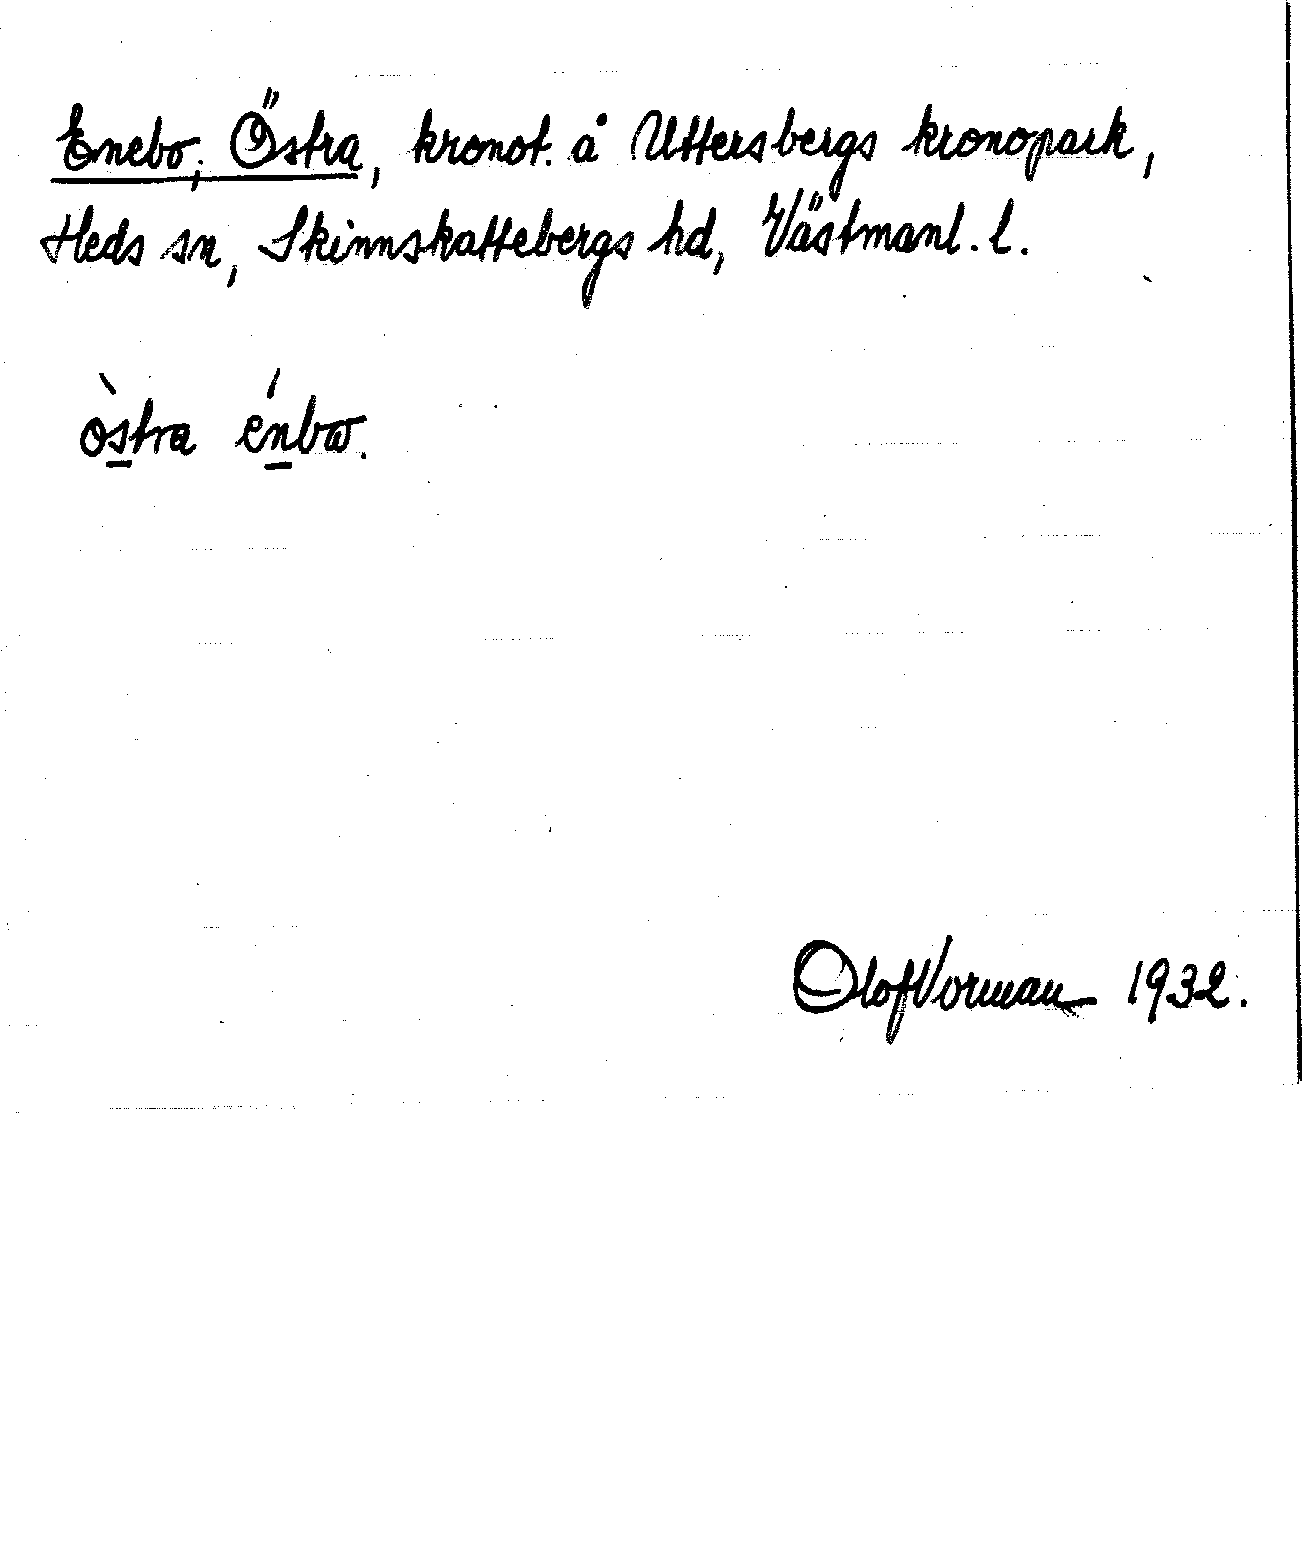 Enebo, Östra, kronot. å Uttersbergs kronopark,
Heds sn, Skinnskattebergs hd, Västmanl. l.
òstra énbω.
Olof Vorman 1932.